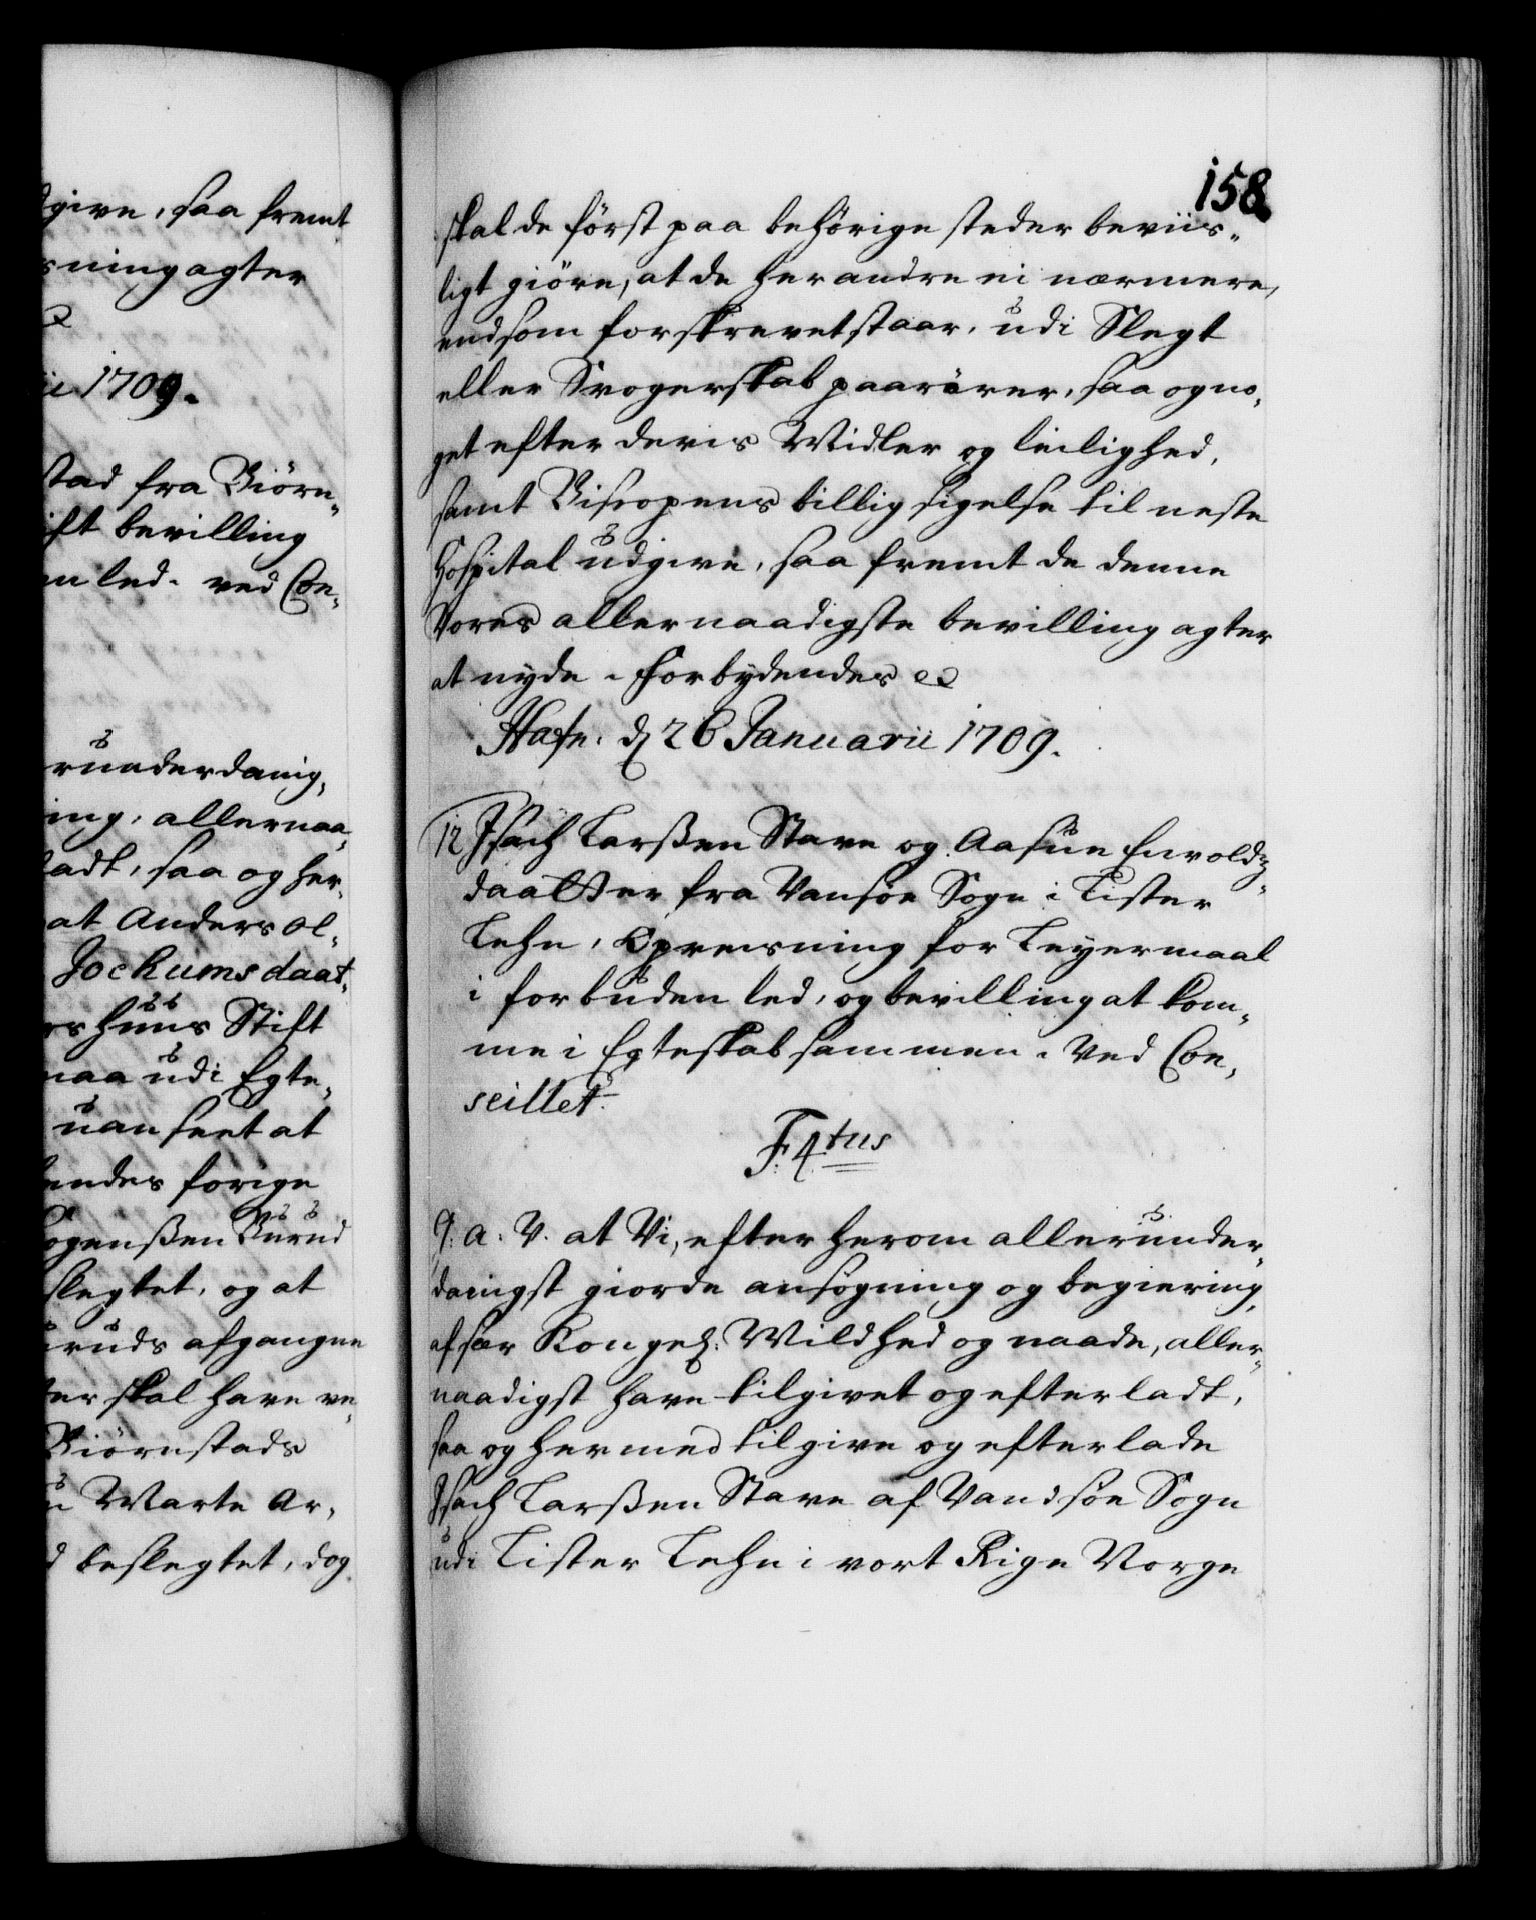 dgive, saa fremt
sning agter
ii 1709.
stad fra Biörn„
ift bevilling
m led. ved Con„
runderdanig„
ing, allernaa„
ladt, saa og her„
at Anders Ol„
Jochumsdaat„
rshuus Stift
maa udi Egte„
uanseet at
endes forige
ogenßen Burud
slegtet, og at
uruds afgangne
ter skal have ve„
Biörnstads
Marte Ar„
d beslegtet, dog
158
skal de först paa behörige steder beviis„
ligt giöre, at de hver andre ei nærmere,
end som forskrevet staar, udi Slegt
eller Svogerskab paarörer, saa og no„
get efter deris Midler og leilighed,
samt Biscopens billig sigelse til neste
Hospital udgive, saa fremt de denne
Vores allernaadigste bevilling agter
at nyde. Forbydendes
Hafn. d 26 Januarii 1709.
12 Isach Larßen Stave og Aasue Envolds
daatter fra Vansöe Sogn i Lister
Lehn, Opreisning for Leyermaal
i forbuden led, og bevilling at kom„
me i Egteskab sammen. Ved Con„
seillet.
F. 4tus
G. A. V. at Vi, efter herom allerunder„
danigst giorde ansögning og begiering,
af sær Kongel: Mildhed og naade, aller„
naadigst have tilgivet og efterladt,
saa og hermed tilgive og efterlade
Isach Larßen Stave af Vandsöe Sogn
udi Lister Lehn i vort Rige Norge